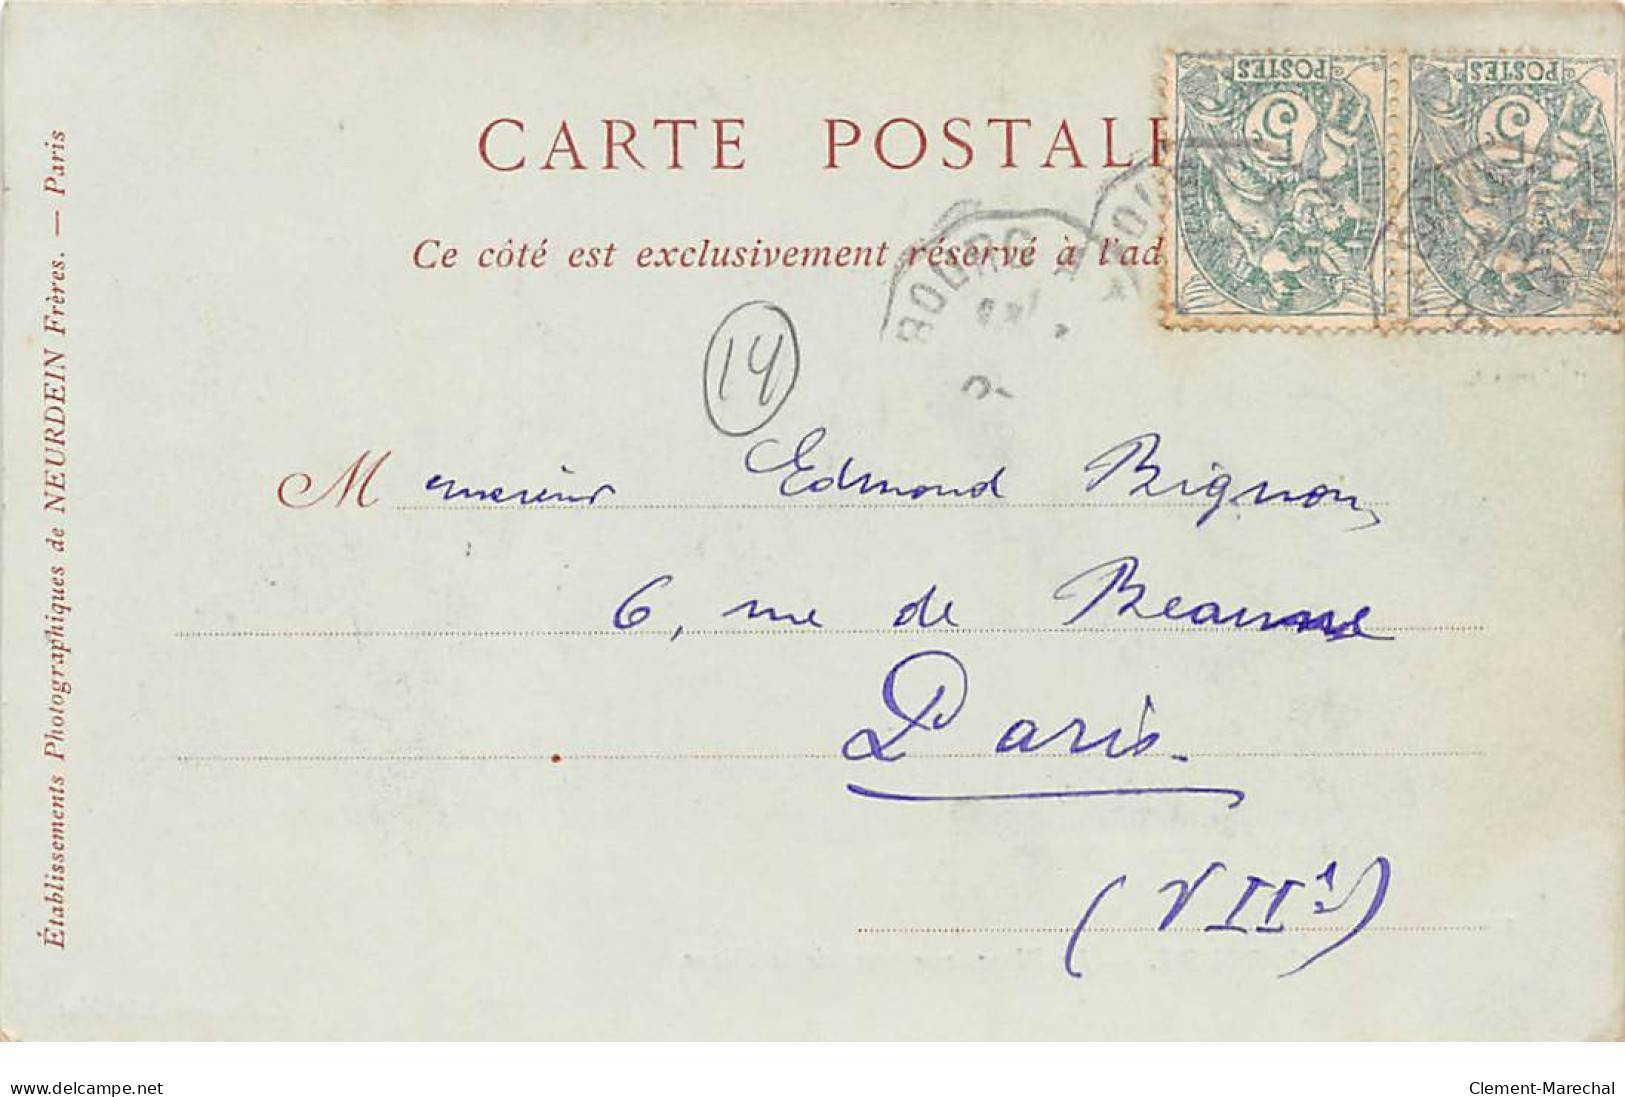 POSTES POSTES
5 5
CARTE POSTALE
Ce côté est exclusivement réservé à l'ad
BOURG
14
Monsieur Edmond Bignon,
6, rue de Beaune
Paris.
(VIIe)
Établissements Photographiques de NEURDEIN Frères. — Paris
www.delcampe.net
Clement-Marechal